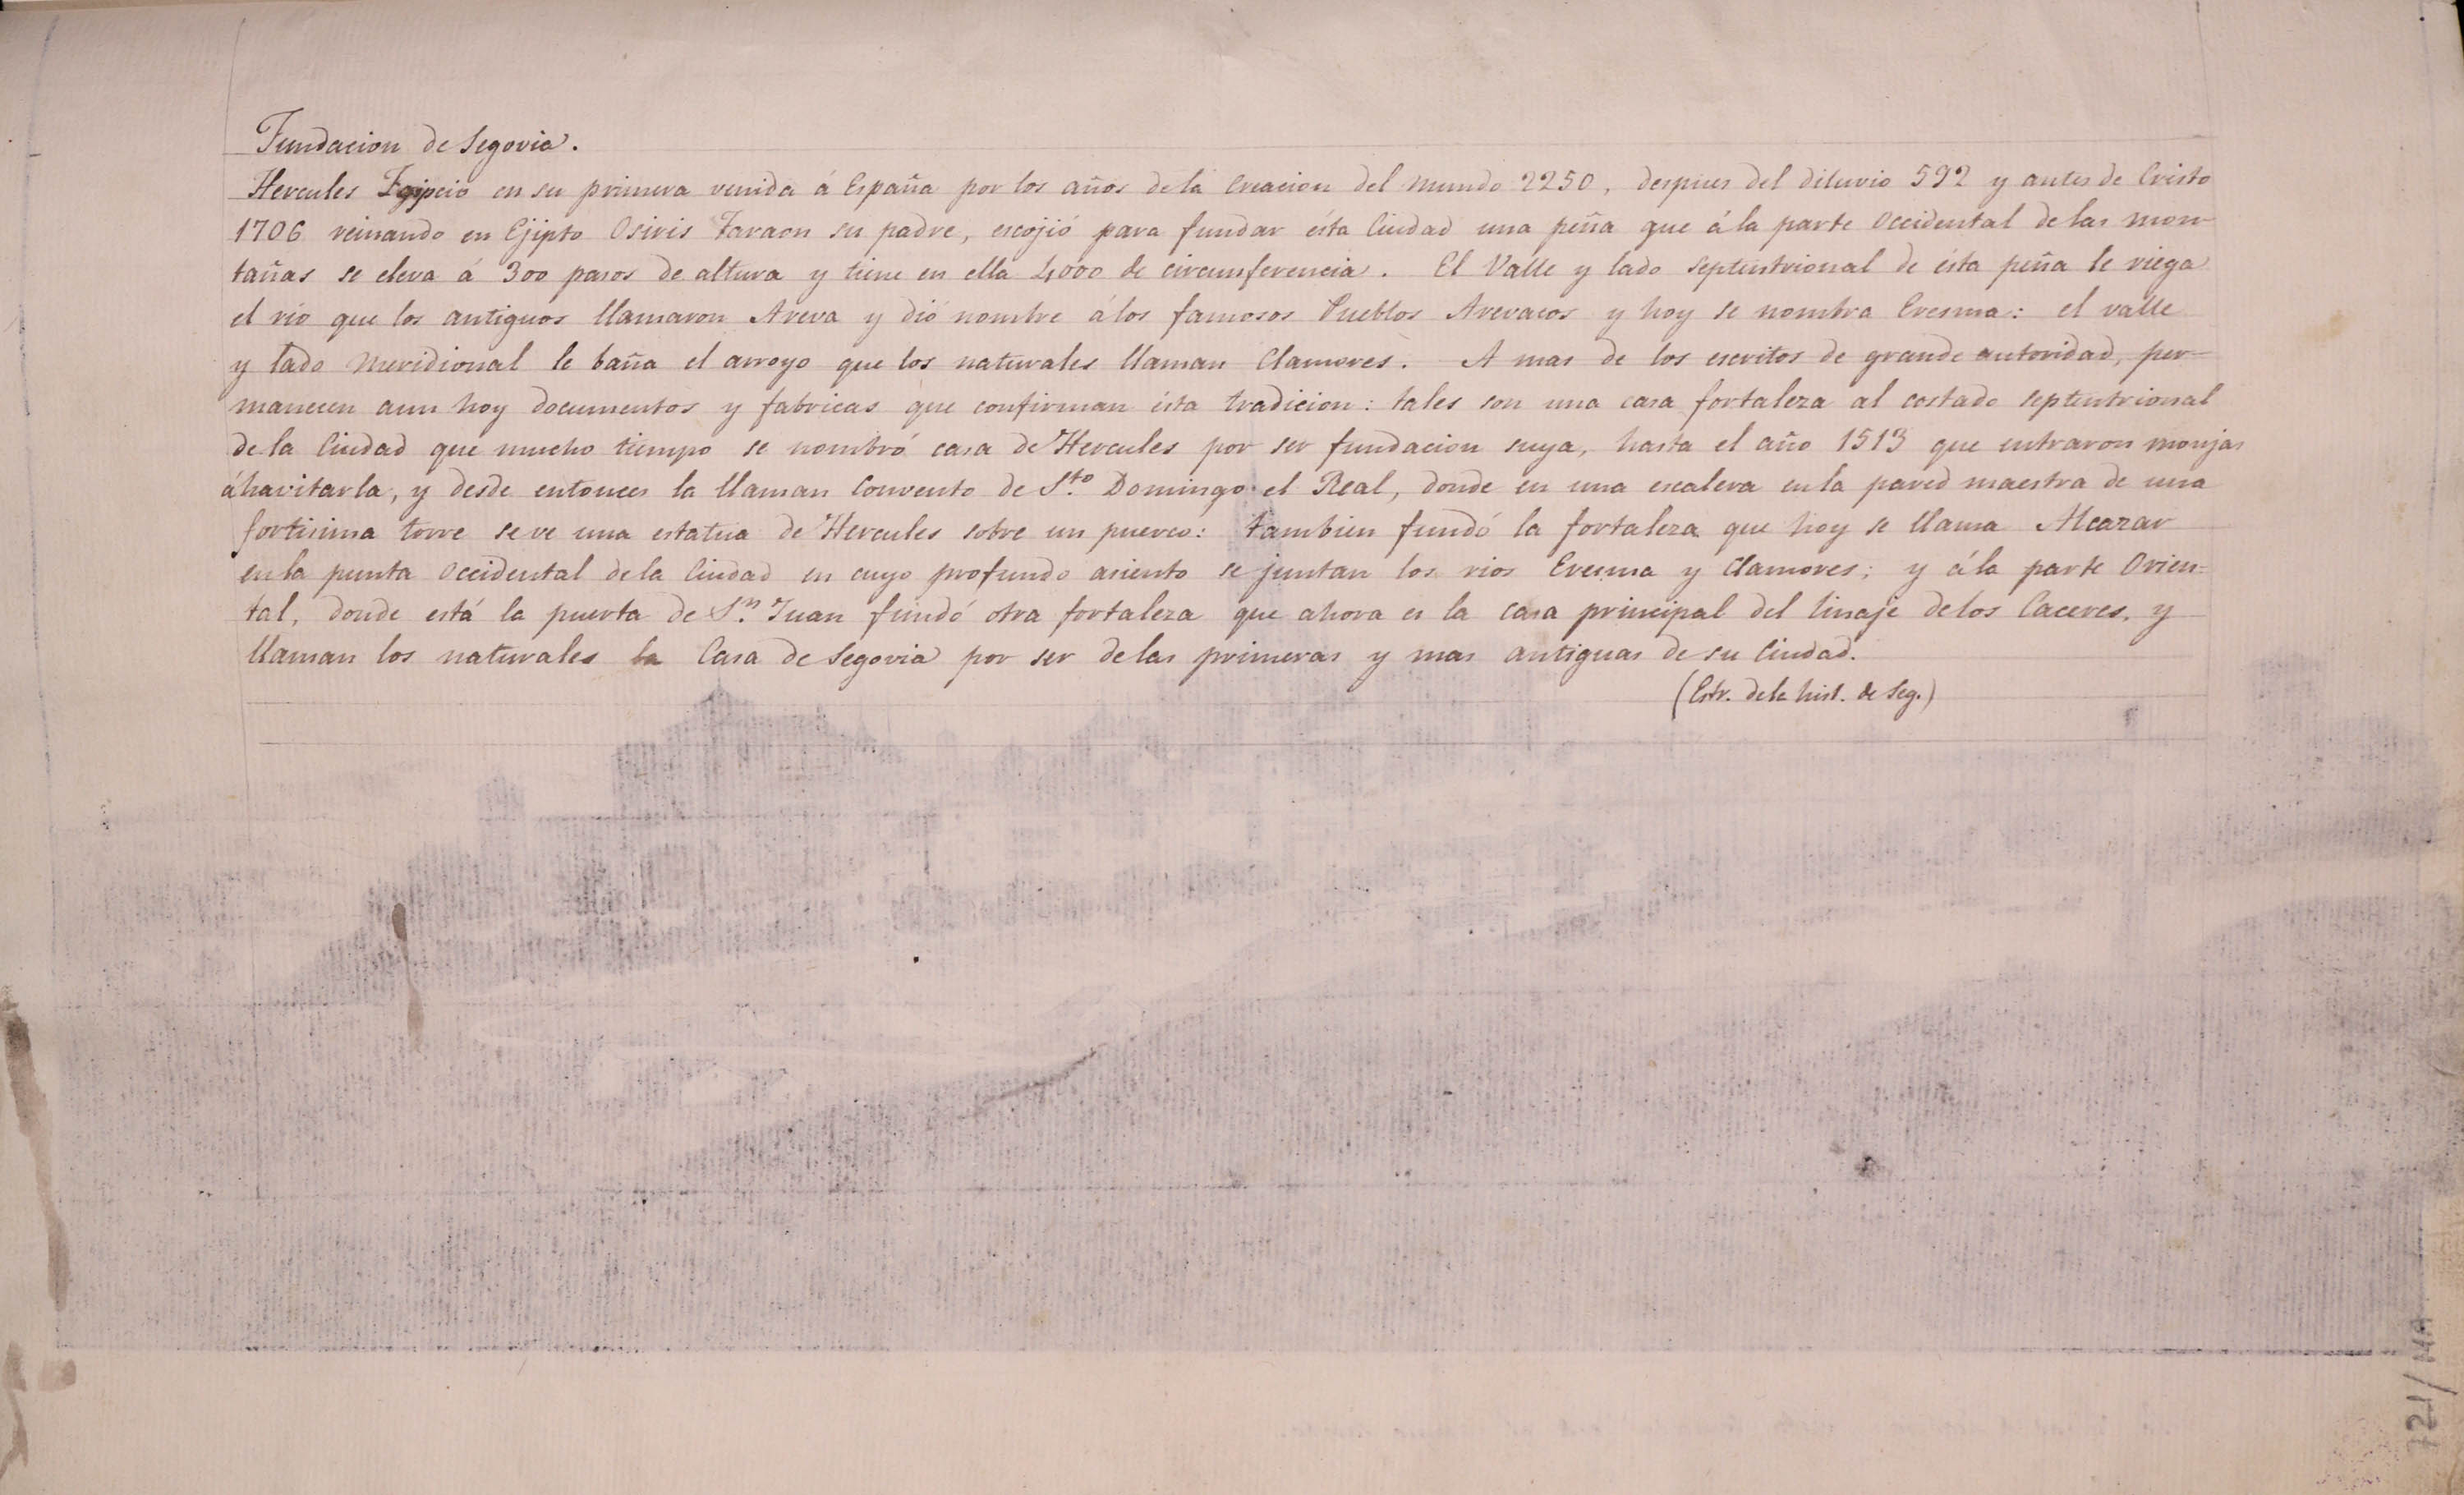 Fundacion de Segovia.
Hercules Egipcio en su primera venida á España por los años de la Creacion del Mundo 2250, despues del diluvio 592 y antes de Cristo
1706 reinando en Ejipto Osiris Faraon su padre, escojió para fundar ésta Ciudad una peña que á la parte Occidental de las mon-
tañas se eleva á 300 pasos de altura y tiene en ella 4000 de circunferencia. El Valle y lado septentrional de ésta peña le riega
el rio que los antiguos llamaron Areva y dió nombre á los famosos Pueblos Arevacos y hoy se nombra Eresma: el valle
y lado Meridional le baña el arroyo que los naturales llaman Clamores. A mas de los escritos de grande autoridad, per-
manecen aun hoy documentos y fabricas que confirman ésta tradicion: tales son una casa fortaleza al costado septentrional
de la Ciudad que mucho tiempo se nombró casa de Hercules por ser fundacion suya, hasta el año 1513 que entraron monjas
á havitarla, y desde entonces la llaman Convento de Sto. Domingo el Real, donde en una escalera en la pared maestra de una
fortisima torre se ve una estatua de Hercules sobre un puerco: tambien fundó la fortaleza que hoy se llama Alcazar
en la punta Occidental de la Ciudad en cuyo profundo asiento se juntan los rios Eresma y Clamores; y á la parte Orien=
tal, donde está la puerta de Sn. Juan fundó otra fortaleza que ahora es la casa principal del linaje de los Caceres, y
llaman los naturales la Casa de Segovia por ser de las primeras y mas antiguas de su Ciudad.
(Estr. de la hist. de Seg.)